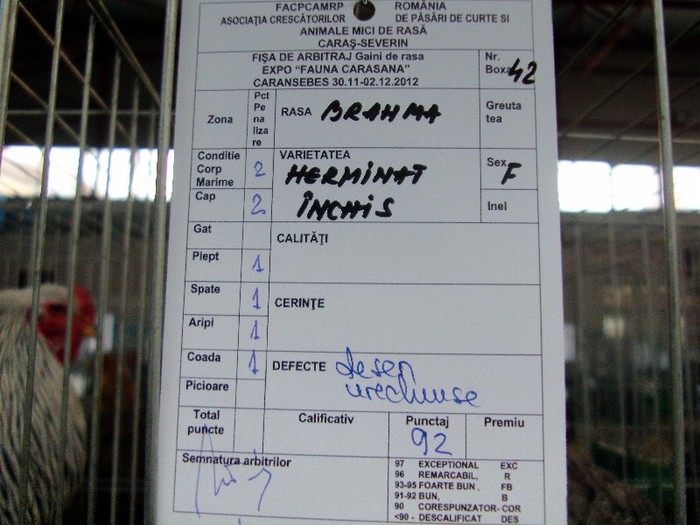 FACPCAMRP ROMÂNIA
ASOCIAŢIA CRESCĂTORILOR DE PĂSĂRI DE CURTE SI
ANIMALE MICI DE RASĂ
CARAŞ-SEVERIN
FIŞA DE ARBITRAJ Gaini de rasa
EXPO "FAUNA CARASANA"
CARANSEBES 30.11-02.12.2012
Nr.
Boxa 42
Zona
Pct
Pe
na
liza
re
RASA BRAHMA
Greuta
tea
Conditie
Corp
Marime
2
VARIETATEA
HERMINAT
ÎNCHIS
Sex F
Cap 2
Inel
Gat
CALITĂŢI
Piept 1
Spate 1
CERINŢE
Aripi 1
Coada 1
DEFECTE desen
urechiuse
Picioare
Total
puncte
Calificativ
Punctaj
92
Premiu
Semnatura arbitrilor
97 EXCEPTIONAL EXC
96 REMARCABIL, R
93-95 FOARTE BUN , FB
91-92 BUN, B
90 CORESPUNZATOR- COR
<90 - DESCALIFICAT DES